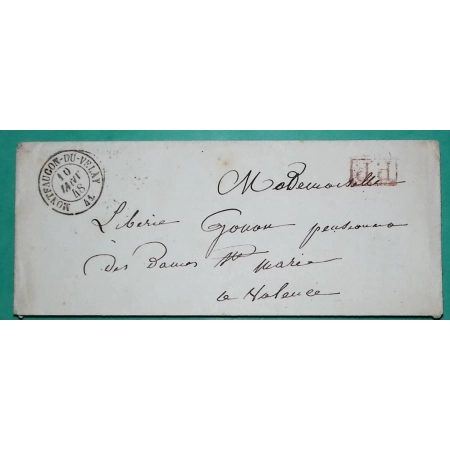 MONTFAUCON-DU-VELAY
10
JANV
48
41
P.P.
Mademoiselle
Liberie Gonon pensionn
des Dames Ste Marie
a Valence